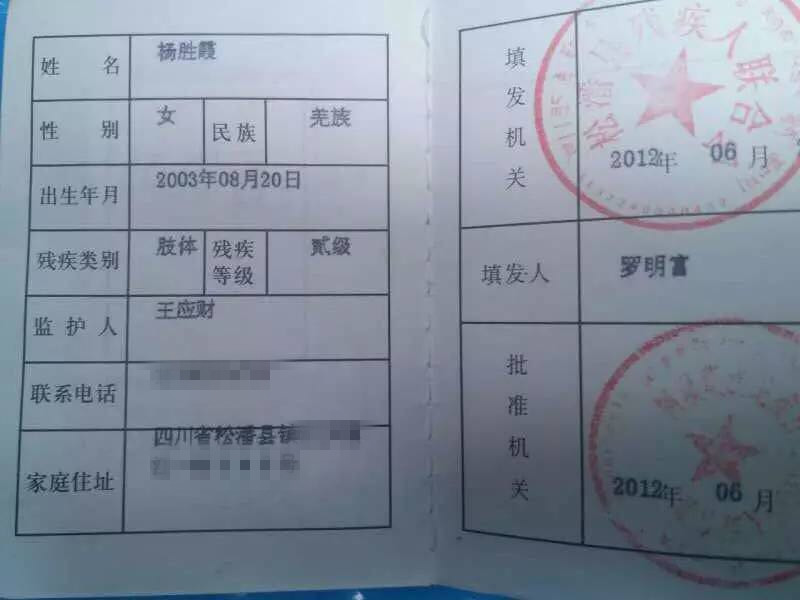 姓 名 杨胜霞
性 别 女 民族 羌族
出生年月 2003年08月20日
残疾类别 肢体 残疾等级 贰级
监护人 王应财
联系电话
家庭住址 四川省松潘县镇
填发机关
松潘县残疾人联合会
2012年 06月
填发人 罗明富
批准机关
2012年 06月